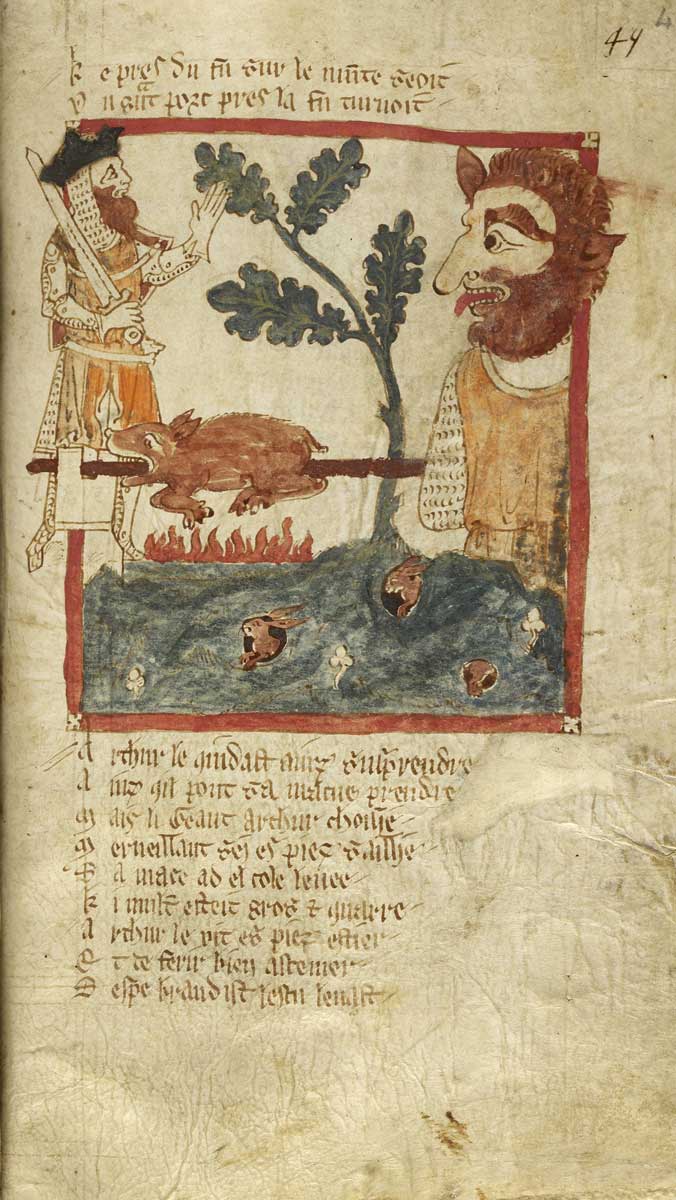 4
49
k e pres du fu sur le munte seoit
V n gnt porc pres la fu turnoit
A rthur le quidast ainz susprendre
A inz qil pout sa macue prendre
M ais li Geant arthur choisie
M erueillant sei es piez saillie
S a mace ad el cole leuee
k i mult esteit gros & quarre
A rthur le vit es piez estier
E t de ferir bien astemer
D espe brandist lescu leuast